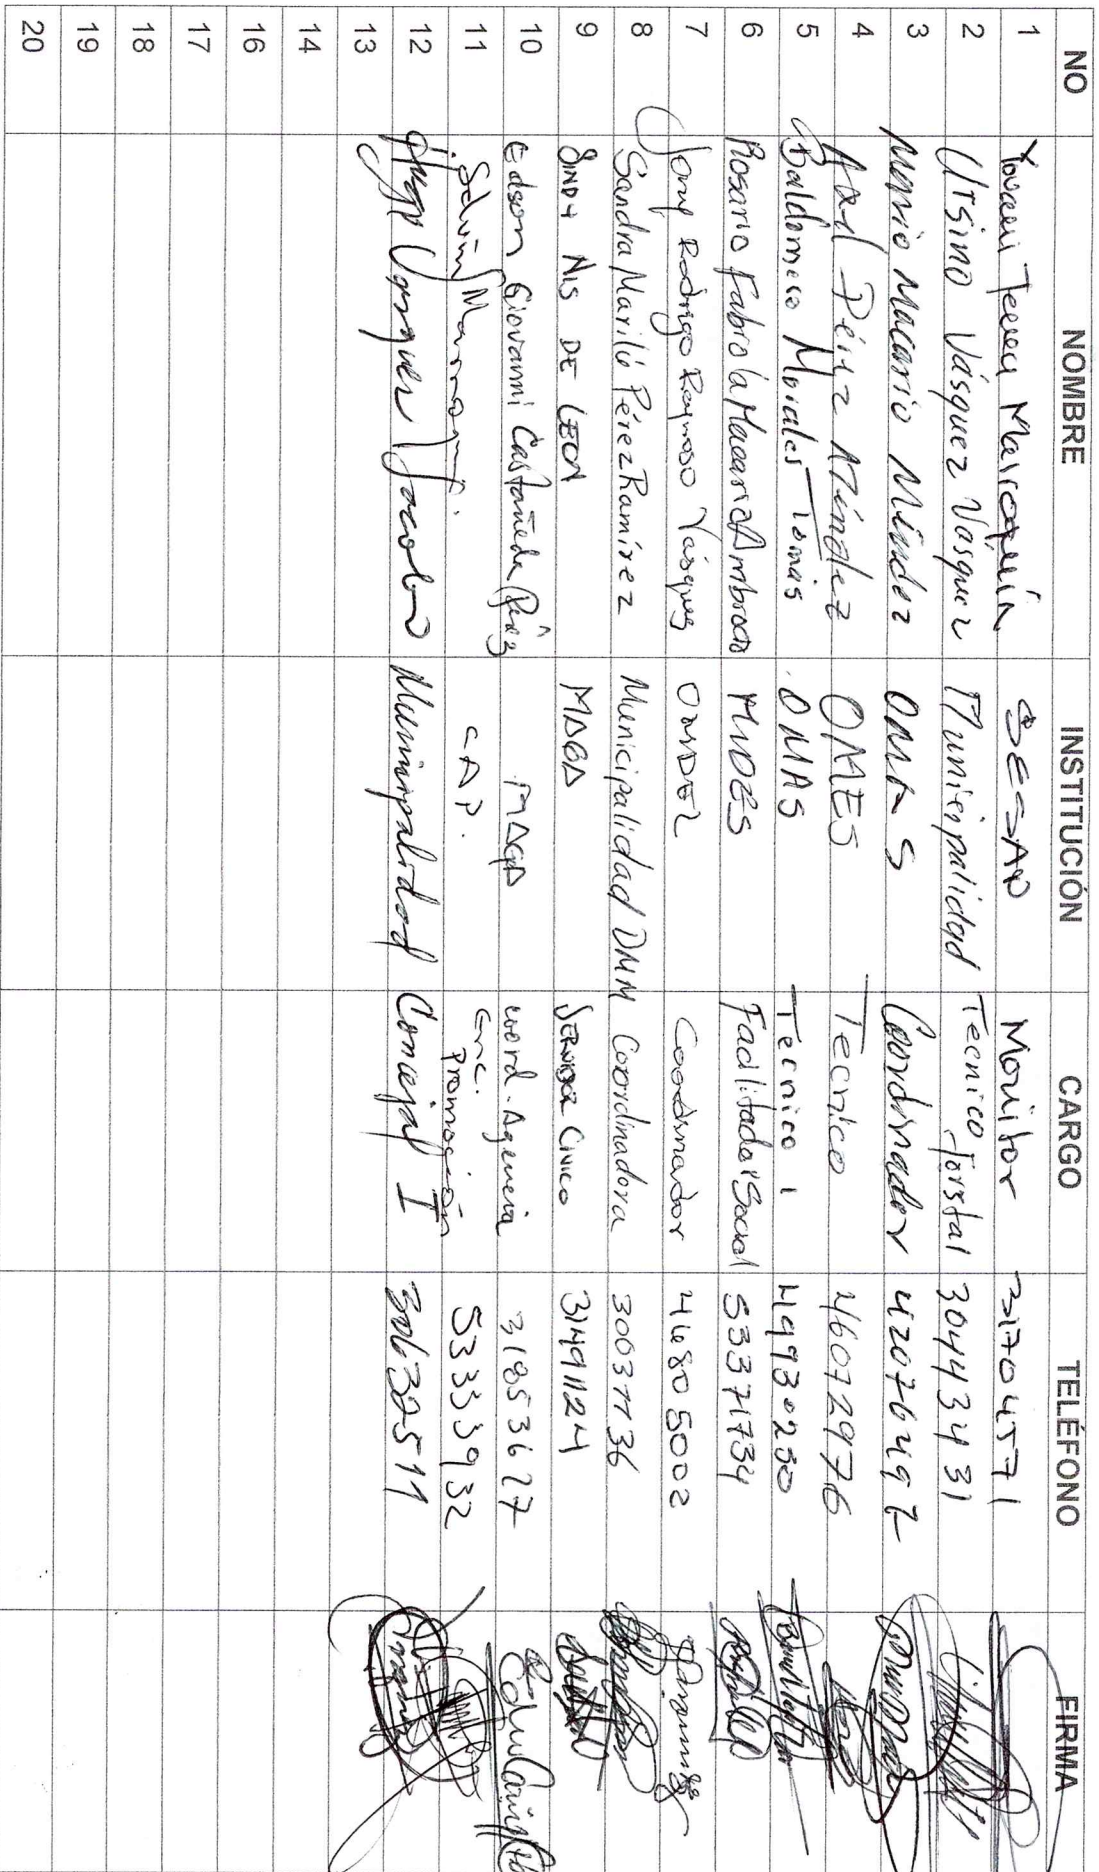 NO NOMBRE INSTITUCIÓN CARGO TELÉFONO FIRMA
1 SESAN Monitor 31704571
2 Ursino Vásquez Vásquez Municipalidad Tecnico Forstal 30443431
3 Mario Macario Méndez OMAS Coordinador 42076497
4 Pérez Méndez OMES Tecnico 46072976
5 Baldomero Morales Tomás OMAS Tecnico 1 49930250
6 Rosario Fabiola Macario Ambrocio MIDES Facilitador Social 53371734
7 Jony Rodrigo Raymundo Vásquez Coordinador 46805002
8 Sandra Marilú Pérez Ramírez Municipalidad DMM Coordinadora 30037736
9 SINDY NIS DE LEON MAGA Servidor Civico 31491124
10 Edson Giovanni Castañeda Pérez MAGA coord. Agencia 31853627
11 CAP. Enc. Promoción 53333932
12 Hugo Vasquez Jacobo Municipalidad Concejal I 30632511
13
14
16
17
18
19
20